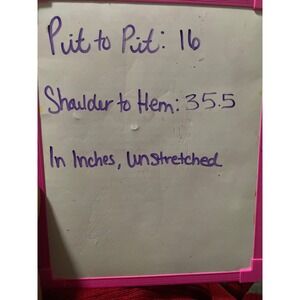 Pit to Pit: 16
Shoulder to Hem: 35.5
In Inches, Unstretched